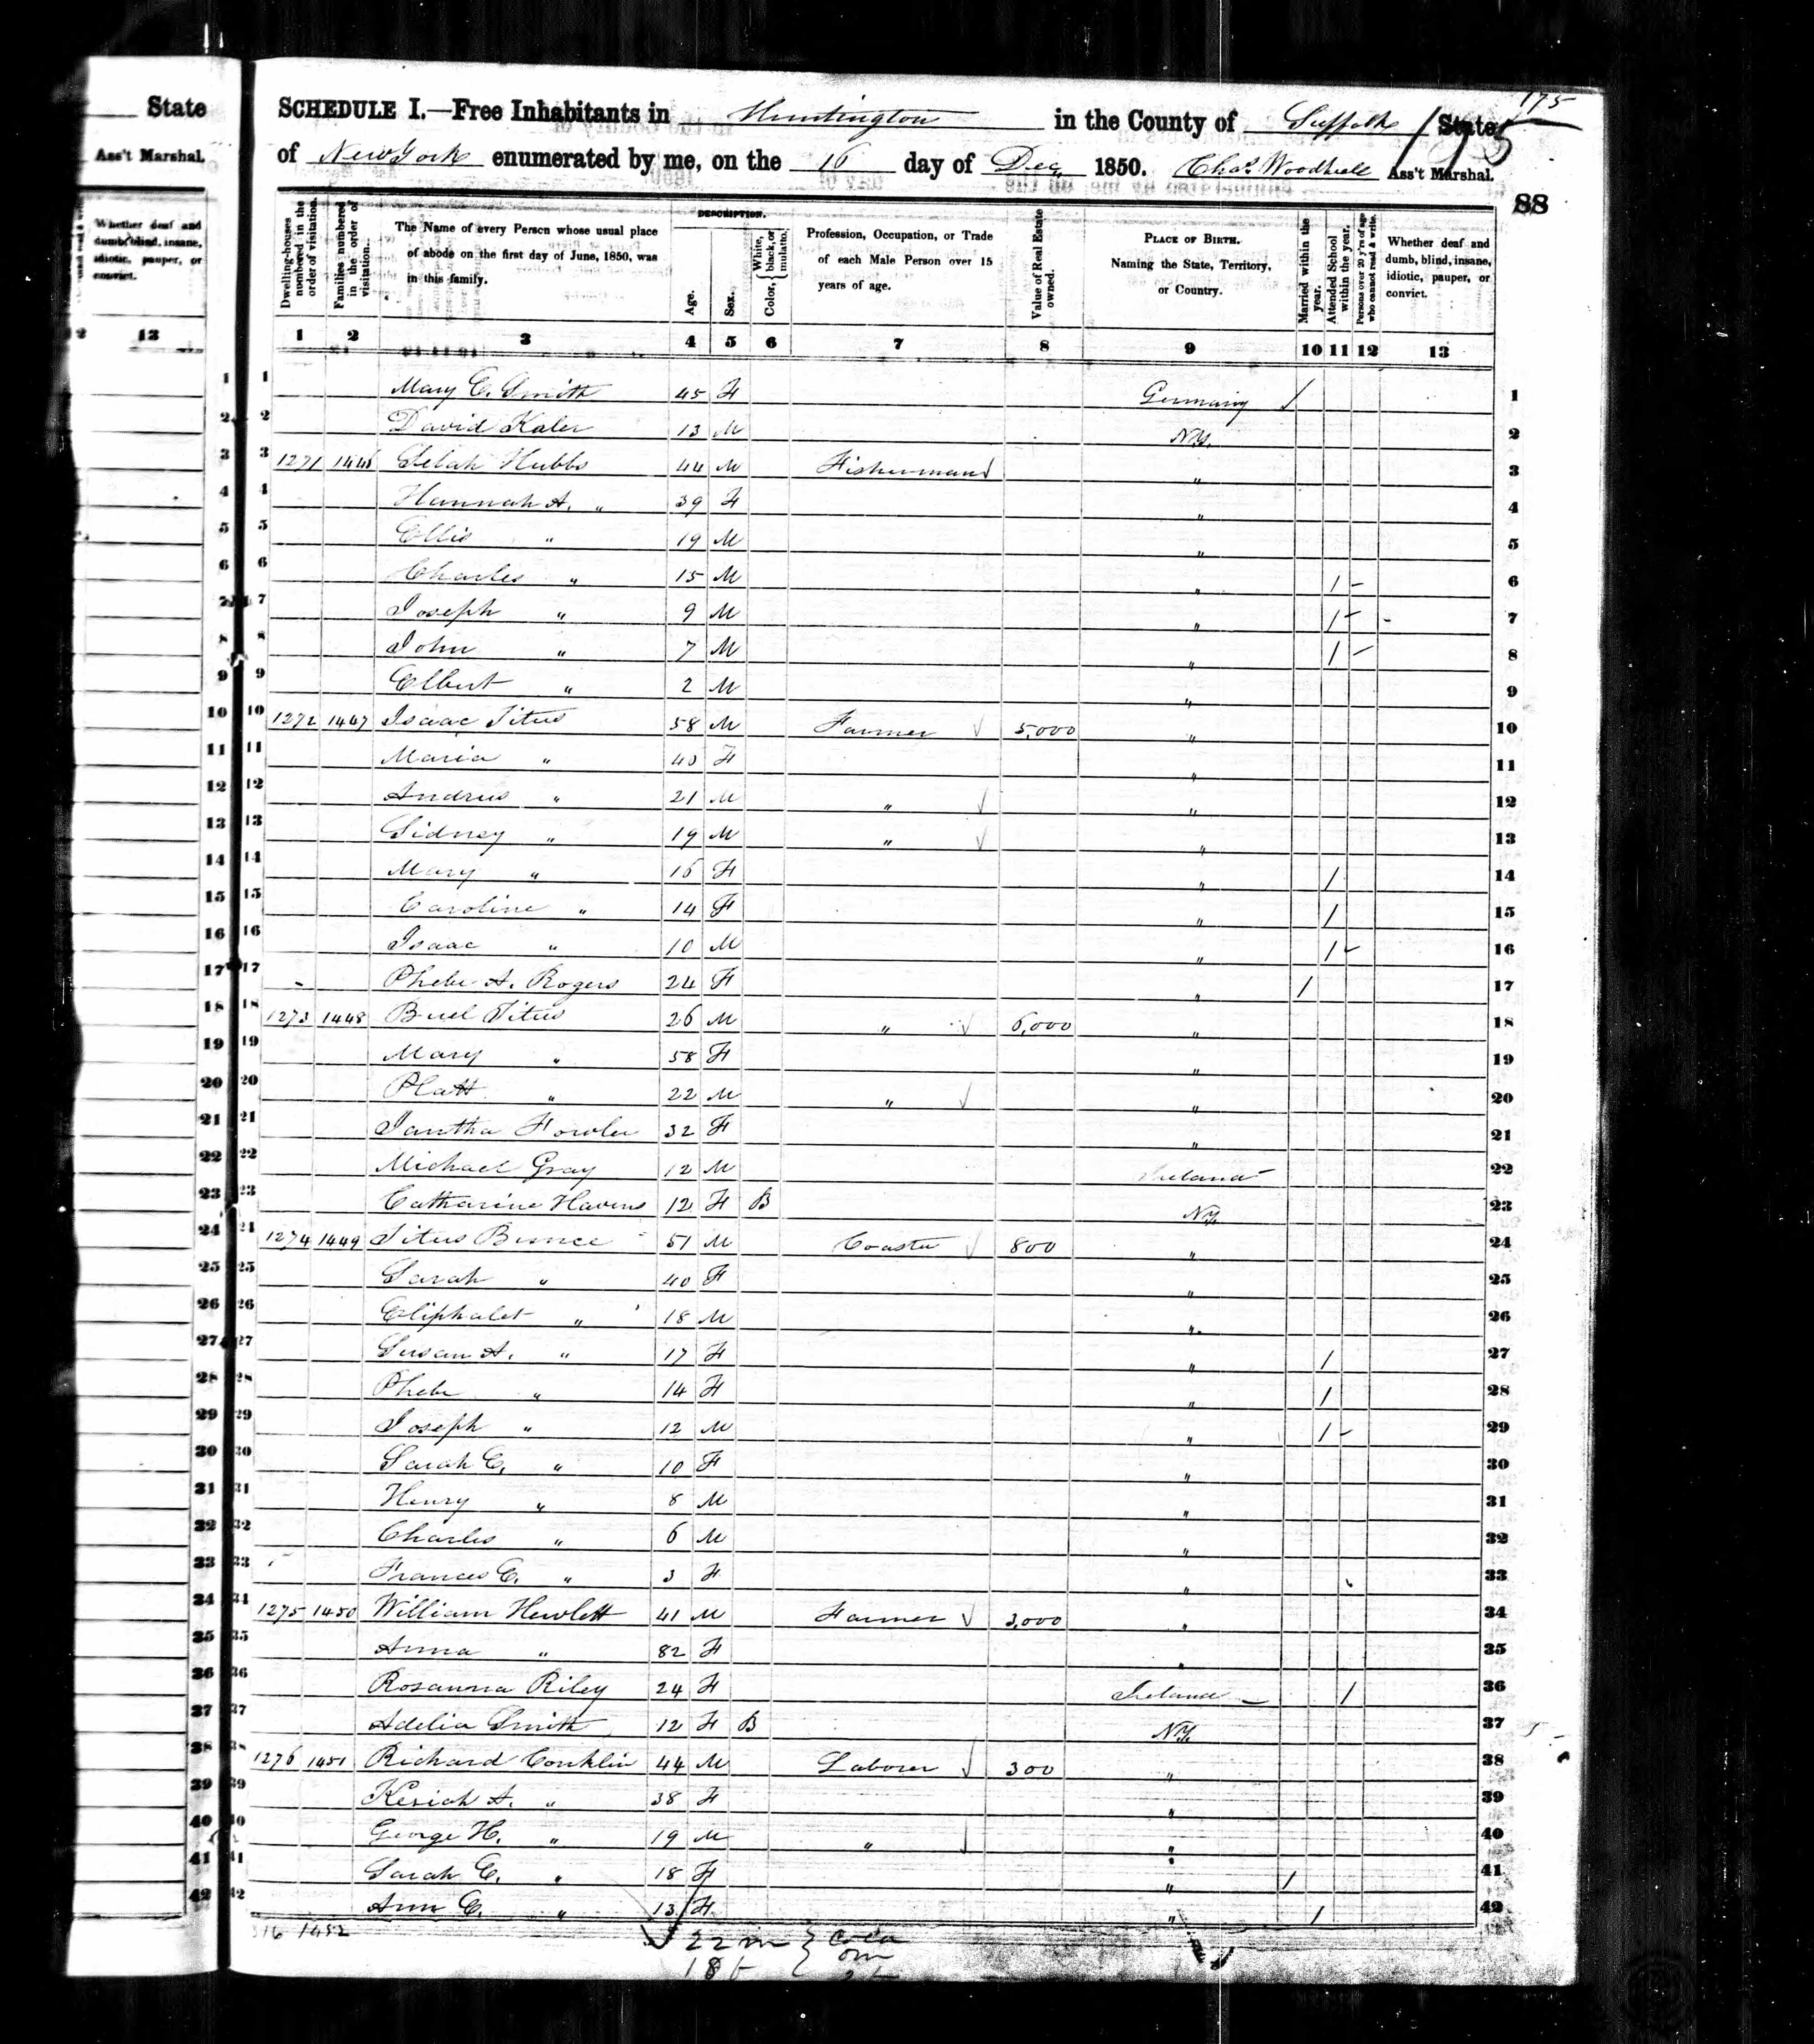 State
Ass't Marshal.
Whether deaf and
dumb, blind, insane,
idiotic, pauper, or
convict.
13
175
SCHEDULE I.—Free Inhabitants in Huntington in the County of Suffolk State
of New York enumerated by me, on the 16 day of Dec. 1850. Chas. Woodhull Ass't Marshal.
175
88
Dwelling-houses numbered in the order of visitation.
Families numbered in the order of visitation.
The Name of every Person whose usual place of abode on the first day of June, 1850, was in this family.
DESCRIPTION.
Age.
Sex.
Color, { White, black, or mulatto.
Profession, Occupation, or Trade of each Male Person over 15 years of age.
Value of Real Estate owned.
PLACE OF BIRTH. Naming the State, Territory, or Country.
Married within the year.
Attended School within the year.
Persons over 20 y'rs of age who cannot read & write.
Whether deaf and dumb, blind, insane, idiotic, pauper, or convict.
1 2 3 4 5 6 7 8 9 10 11 12 13
1 Mary E. Smith 45 F Germany / 1
2 David Kaler 13 M N.Y. 2
3 1271 1446 Selah Hubbs 44 M Fisherman " 3
4 Hannah A. " 39 F " 4
5 Ellis " 19 M " 5
6 Charles " 15 M " / 6
7 Joseph " 9 M " / 7
8 John " 7 M " / 8
9 Elbert " 2 M " 9
10 1272 1447 Isaac Titus 58 M Farmer 5,000 " 10
11 Maria " 40 F " 11
12 Andrus " 21 M " " 12
13 Sidney " 19 M " " 13
14 Mary " 16 F " / 14
15 Caroline " 14 F " / 15
16 Isaac " 10 M " / 16
17 Phebe A. Rogers 24 F " / 17
18 1273 1448 Buel Titus 26 M " 6,000 " 18
19 Mary " 58 F " 19
20 Platt " 22 M " " 20
21 Iantha Fowler 32 F " 21
22 Michael Gray 12 M Ireland 22
23 Catharine Havens 12 F B N.Y. 23
24 1274 1449 Titus Bunce 51 M Coaster 800 " 24
25 Sarah " 40 F " 25
26 Eliphalet " 18 M " 26
27 Susan A. " 17 F " / 27
28 Phebe " 14 F " / 28
29 Joseph " 12 M " / 29
30 Sarah E. " 10 F " 30
31 Henry " 8 M " 31
32 Charles " 6 M " 32
33 Frances E. " 3 F " 33
34 1275 1450 William Hewlett 41 M Farmer 3,000 " 34
35 Anna " 82 F " 35
36 Rosanna Riley 24 F Ireland / 36
37 Adelia Smith 12 F B N.Y. 37
38 1276 1451 Richard Conklin 44 M Laborer 300 " 38
39 Keziah A. " 38 F " 39
40 George H. " 19 M " " 40
41 Sarah E. " 18 F " / 41
42 Ann E. " 13 F " / 42
1452
22 m
18 f